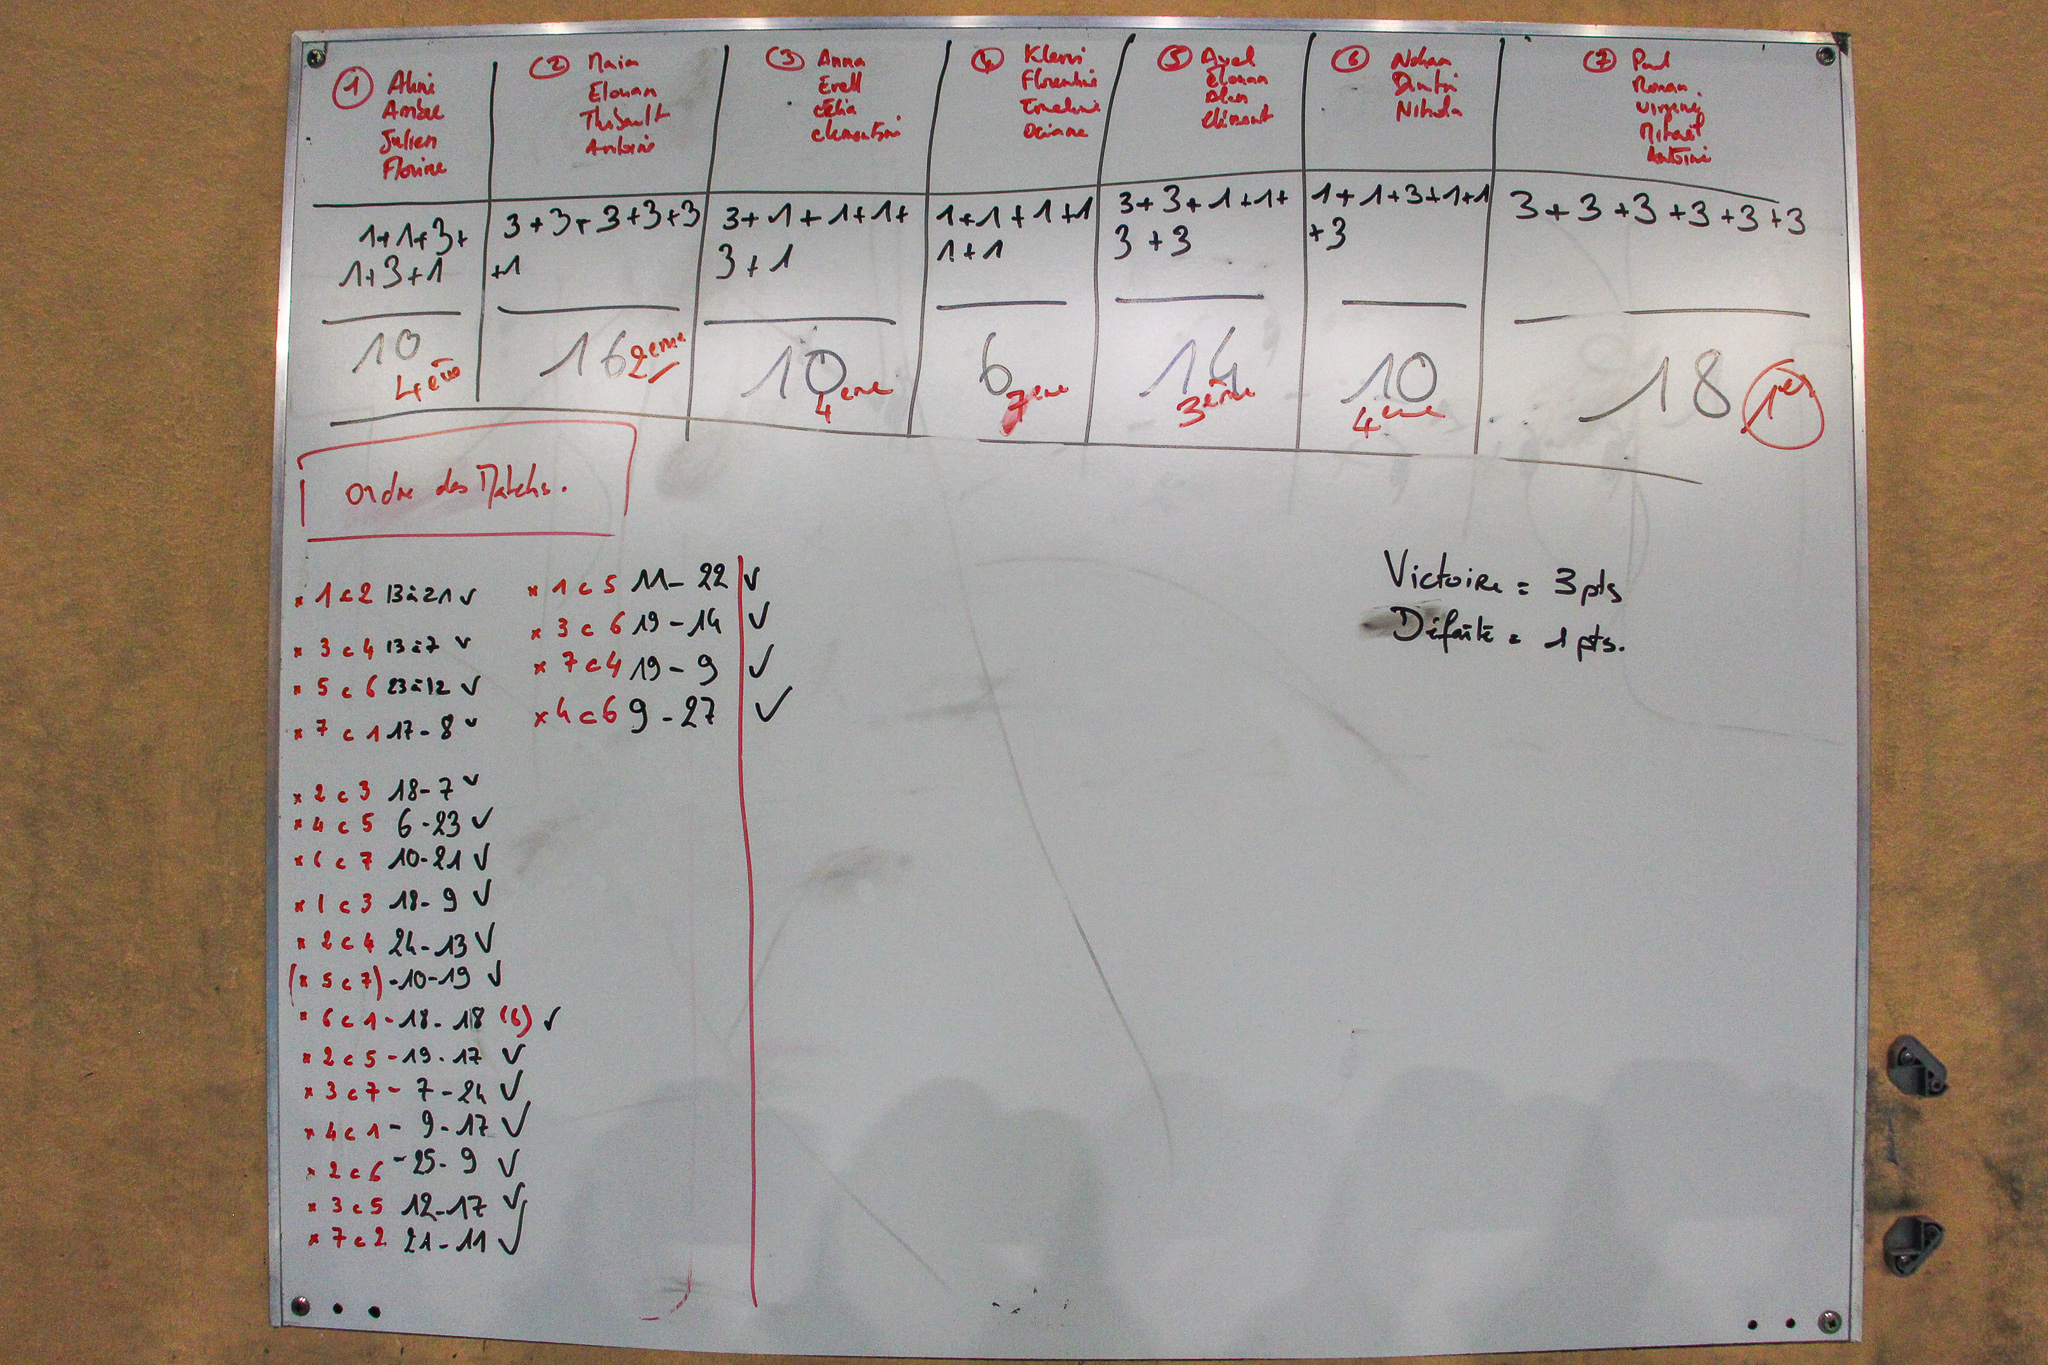 1 Aline
Ambre
Julien
Florine
1+1+3+
1+3+1
10
4ème
2 Maia
Elouan
Thibault
Antoine
3+3+3+3+3
+1
16
2eme
3 Anna
Erell
Célia
Clementine
3+1+1+1+
3+1
10
4eme
4 Klervi
Florentine
Emeline
Océane
1+1+1+1
1+1
6
7eme
5 Axel
Elouan
Alan
Clément
3+3+1+1+
3+3
14
3ème
6 Nohan
Dimitri
Nikola
1+1+3+1+1
+3
10
4eme
7 Paul
Ronan
Virginie
Mikaël
Antoine
3+3+3+3+3+3
18
1er
Ordre des Matchs.
x 1 c 2 13 à 21 ✓
x 3 c 4 13 à 7 ✓
x 5 c 6 23 à 12 ✓
x 7 c 1 17-8 ✓
x 2 c 3 18-7 ✓
x 4 c 5 6-23 ✓
x 6 c 7 10-21 ✓
x 1 c 3 18-9 ✓
x 2 c 4 24-13 ✓
(x 5 c 7) -10-19 ✓
x 6 c 1 - 18-18 (6) ✓
x 2 c 5 - 19-17 ✓
x 3 c 7 - 7-24 ✓
x 4 c 1 - 9-17 ✓
x 2 c 6 - 25-9 ✓
x 3 c 5 12-17 ✓
x 7 c 2 21-11 ✓
x 1 c 5 11-22 ✓
x 3 c 6 19-14 ✓
x 7 c 4 19-9 ✓
x 4 c 6 9-27 ✓
Victoire = 3 pts
Défaite = 1 pts.